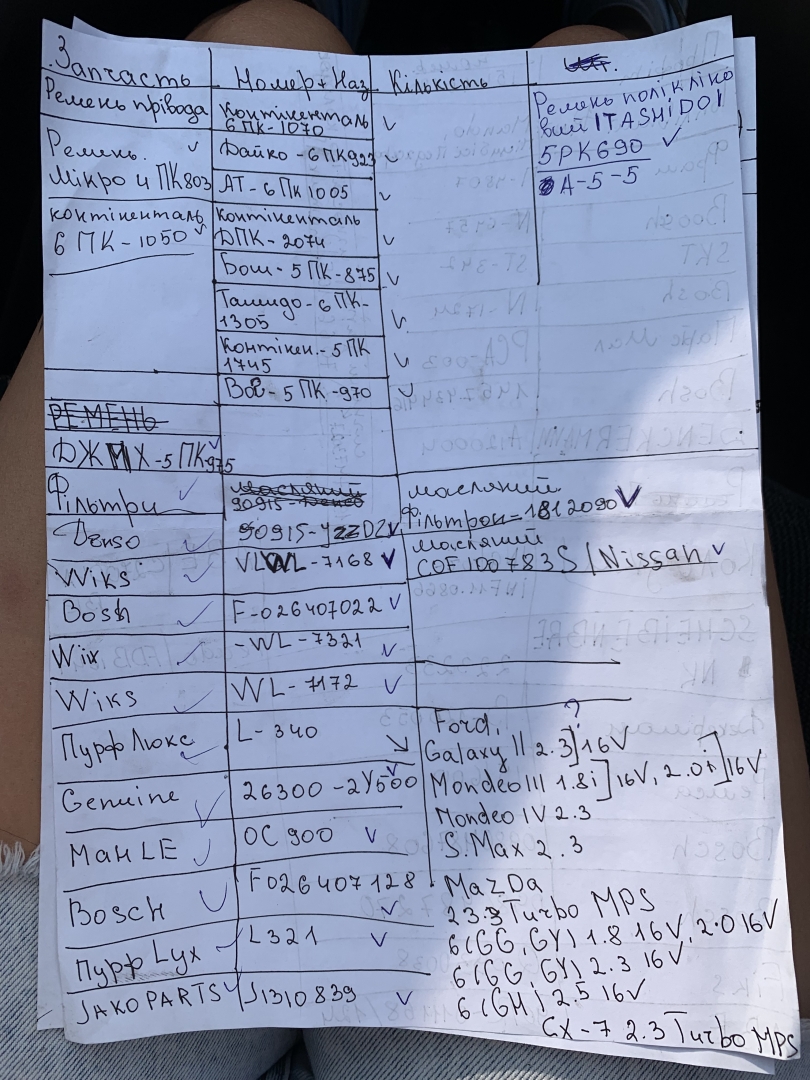 Запчасть Номер+Наз Кількість
Ремень прівода
Контіненталь
6 ПК-1070
Ремень.
Мікро 4 ПК803
Дайко-6ПК923
АТ-6 Пк 1005
контіненталь
6 ПК-1050
Контіненталь
ДПК-2074
Бош-5 ПК-875
6 ПК-
1305
Контінен.-5 ПК
1745
5 ПК-970
Ремень полікліно
вий ITASHIDOI
5PK690
A-5-5
РЕМЕНЬ
ДЖМХ-5 ПК975
Фільтри
масляний
90915-Denco
масляний
Фільтрон-1812090
Denso 90915-YZZDZ
масляний
COF100783S/Nissan
Wiks WL-7168
Bosh F-026407022
Wix -WL-7321
Wiks WL-7172
Пурф Люкс L-340
Ford,
?
Galaxy II 2.3] 16V
Genuine 26300-2Y500
Mondeo III 1.8i] 16V, 2.0i] 16V
Mondeo IV 2.3
S.Max 2.3
MAHLE OC 900
Bosch F026407128
MaZDa
2.3 Turbo MPS
6(GG,GY) 1.8 16V, 2.0 16V
6(GG,GY) 2.3 16V
6(GH) 2.5 16V
CX-7 2.3 Turbo MPS
Пурф Lyx L321
JAKOPARTS J1310839